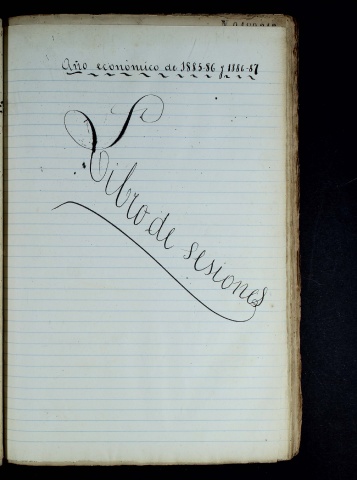 Año económico de 1885-86 y 1886-87
Libro de sesiones